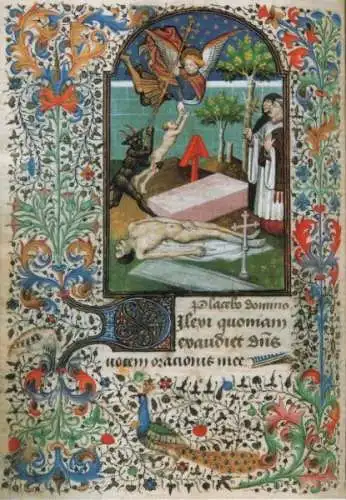 Placebo domino.
Dilexi quoniam
exaudiet dñs
uocem orationis mee